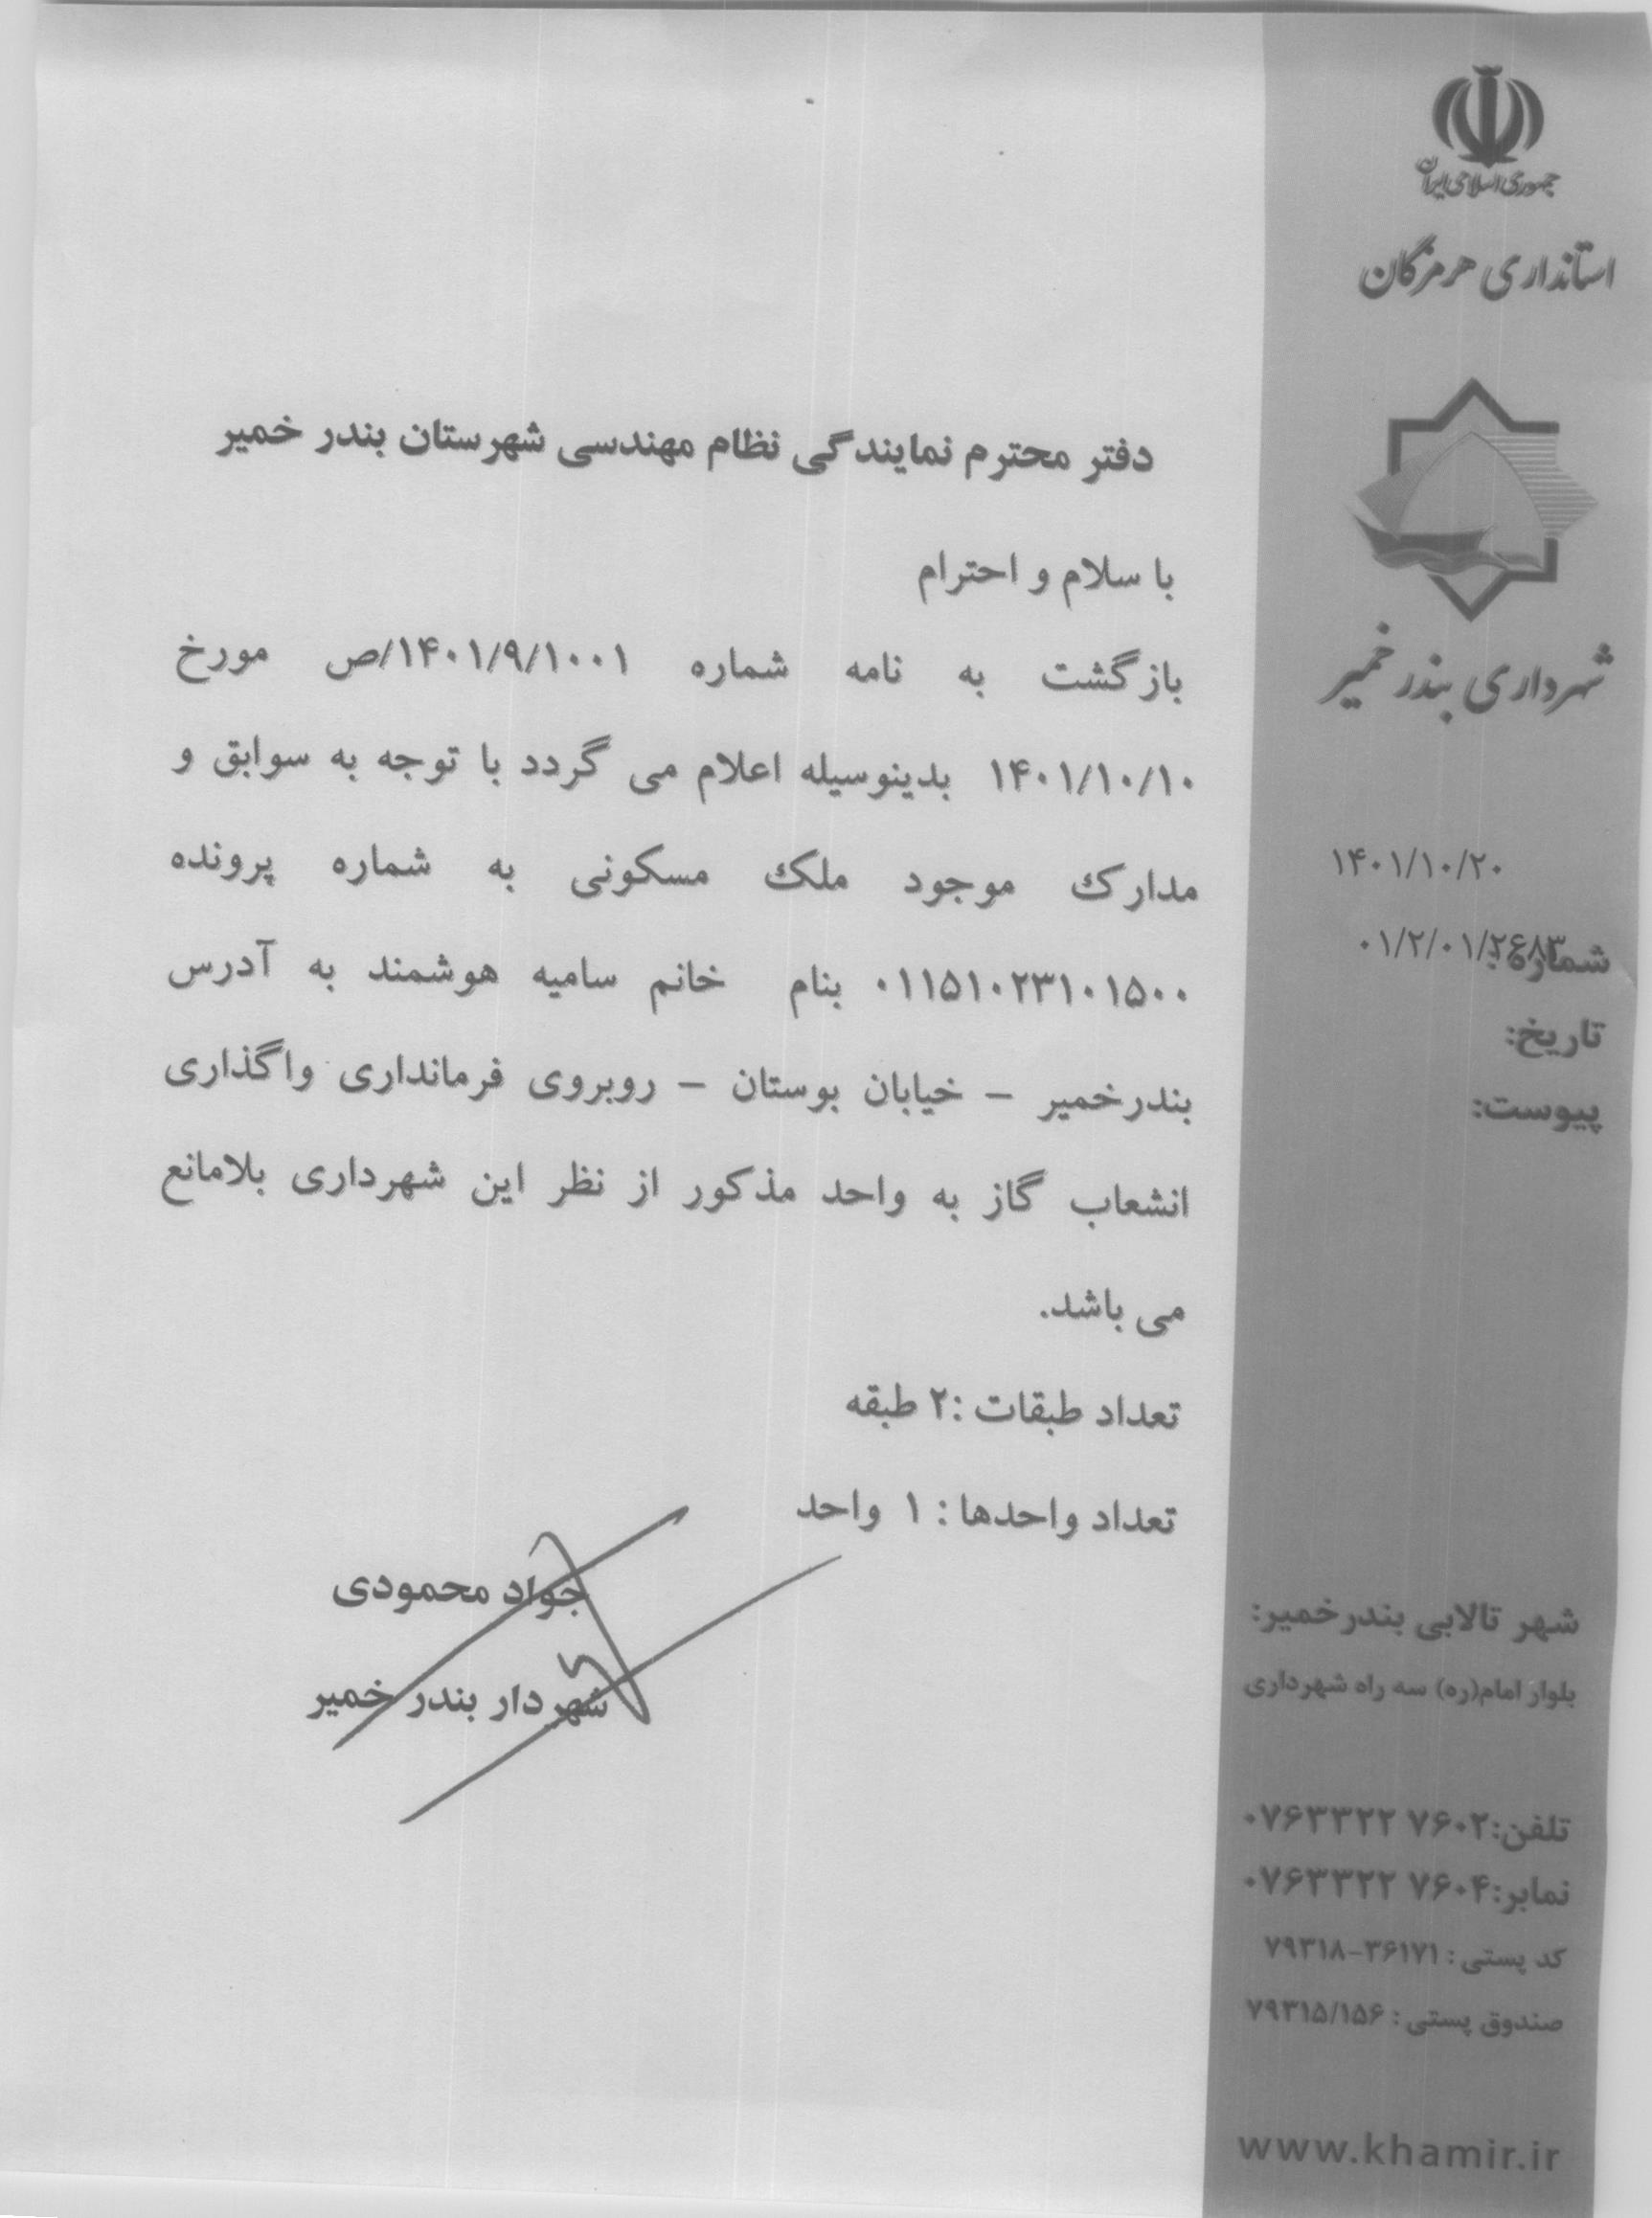 جمهوری اسلامی ایران
استانداری هرمزگان
شهرداری بندر خمیر
۱۴۰۱/۱۰/۲۰
شماره: ۰۱/۲/۰۱/۲۶۸۳
تاریخ:
پیوست:
دفتر محترم نمایندگی نظام مهندسی شهرستان بندر خمیر
با سلام و احترام
بازگشت به نامه شماره ۱۴۰۱/۹/۱۰۰۱/ص مورخ
۱۴۰۱/۱۰/۱۰ بدینوسیله اعلام می گردد با توجه به سوابق و
مدارک موجود ملک مسکونی به شماره پرونده
۰۱۱۵۱۰۲۳۱۰۱۵۰۰ بنام خانم سامیه هوشمند به آدرس
بندرخمیر – خیابان بوستان – روبروی فرمانداری واگذاری
انشعاب گاز به واحد مذکور از نظر این شهرداری بلامانع
می باشد.
تعداد طبقات :۲ طبقه
تعداد واحدها : ۱ واحد
جواد محمودی
شهردار بندر خمیر
شهر تالابی بندرخمیر:
بلوار امام(ره) سه راه شهرداری
تلفن:۷۶۰۲ ۰۷۶۳۳۲۲
نمابر:۷۶۰۴ ۰۷۶۳۳۲۲
کد پستی : ۳۶۱۷۱-۷۹۳۱۸
صندوق پستی : ۷۹۳۱۵/۱۵۶
www.khamir.ir